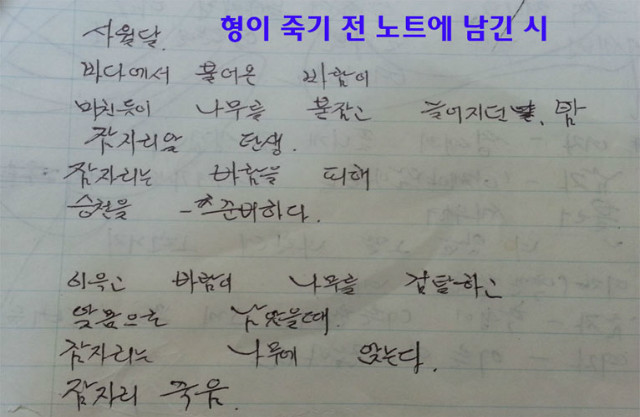 형이 죽기 전 노트에 남긴 시
사월달.
바다에서 불어온 바람이
미친듯이 나무를 붙잡고 늘어지던 밤
잠자리알 탄생.
잠자리는 바람을 피해
승천을 준비하다.
이윽고 바람이 나무를 겁탈하고
알몸으로 남았을때.
잠자리는 나무에 앉는다.
잠자리 죽음.